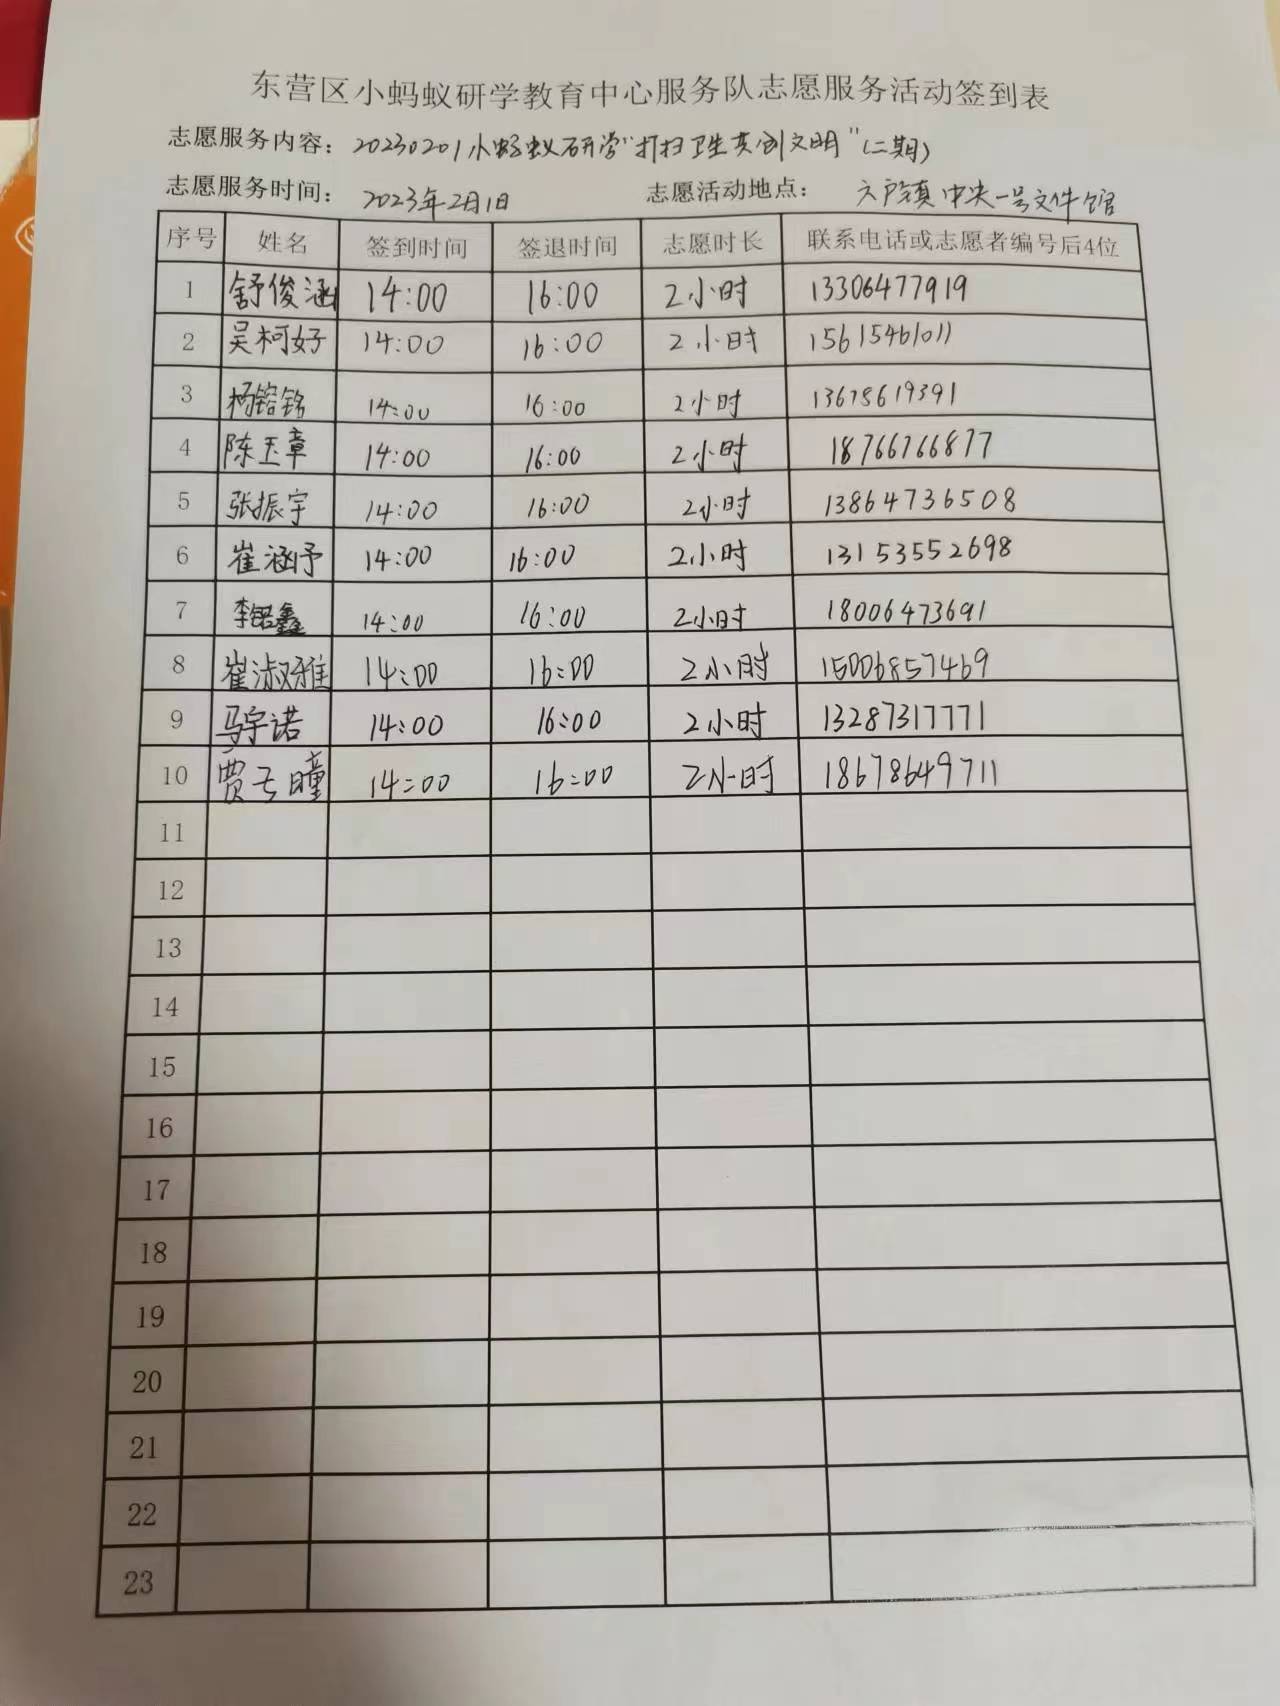 东营区小蚂蚁研学教育中心服务队志愿服务活动签到表
志愿服务内容：20230201小蚂蚁研学“打扫卫生共创文明”(二期)
志愿服务时间： 2023年2月1日 志愿活动地点： 六户镇中央一号文件馆
序号 姓名 签到时间 签退时间 志愿时长 联系电话或志愿者编号后4位
1 舒俊涵 14:00 16:00 2小时 13306477919
2 吴柯好 14:00 16:00 2小时 15615461011
3 杨镕铭 14:00 16:00 2小时 13678619391
4 陈玉章 14:00 16:00 2小时 18766766877
5 张振宇 14:00 16:00 2小时 13864736508
6 崔涵予 14:00 16:00 2小时 13153552698
7 李鑫 14:00 16:00 2小时 18006473691
8 崔淑雅 14:00 16:00 2小时 15006857469
9 马宇诺 14:00 16:00 2小时 13287317771
10 贾曈 14:00 16:00 2小时 18678649711
11
12
13
14
15
16
17
18
19
20
21
22
23